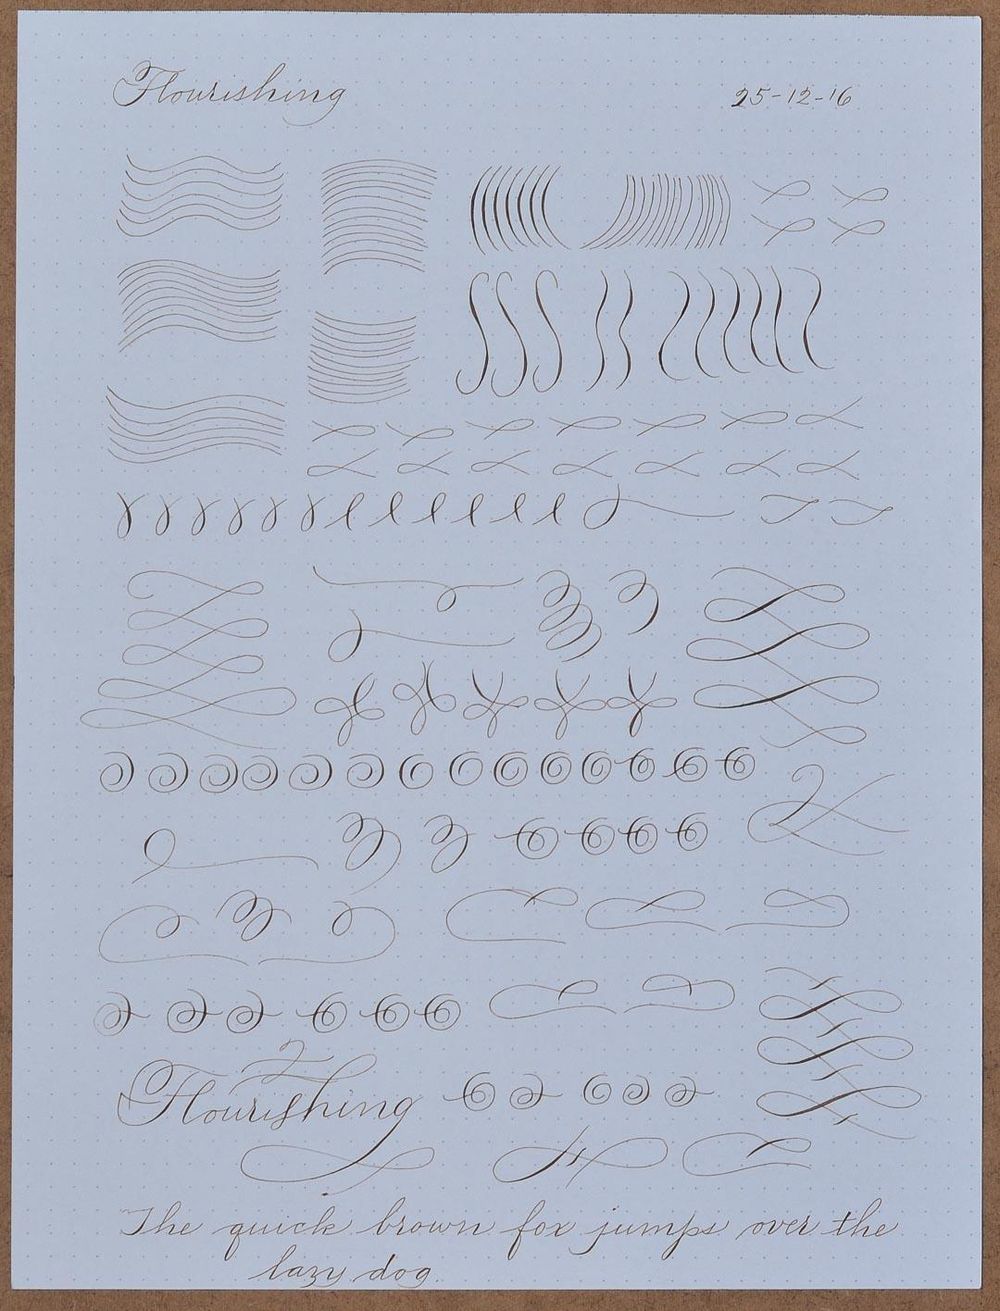 Flourishing 25-12-16
Flourishing
The quick brown fox jumps over the
lazy dog.